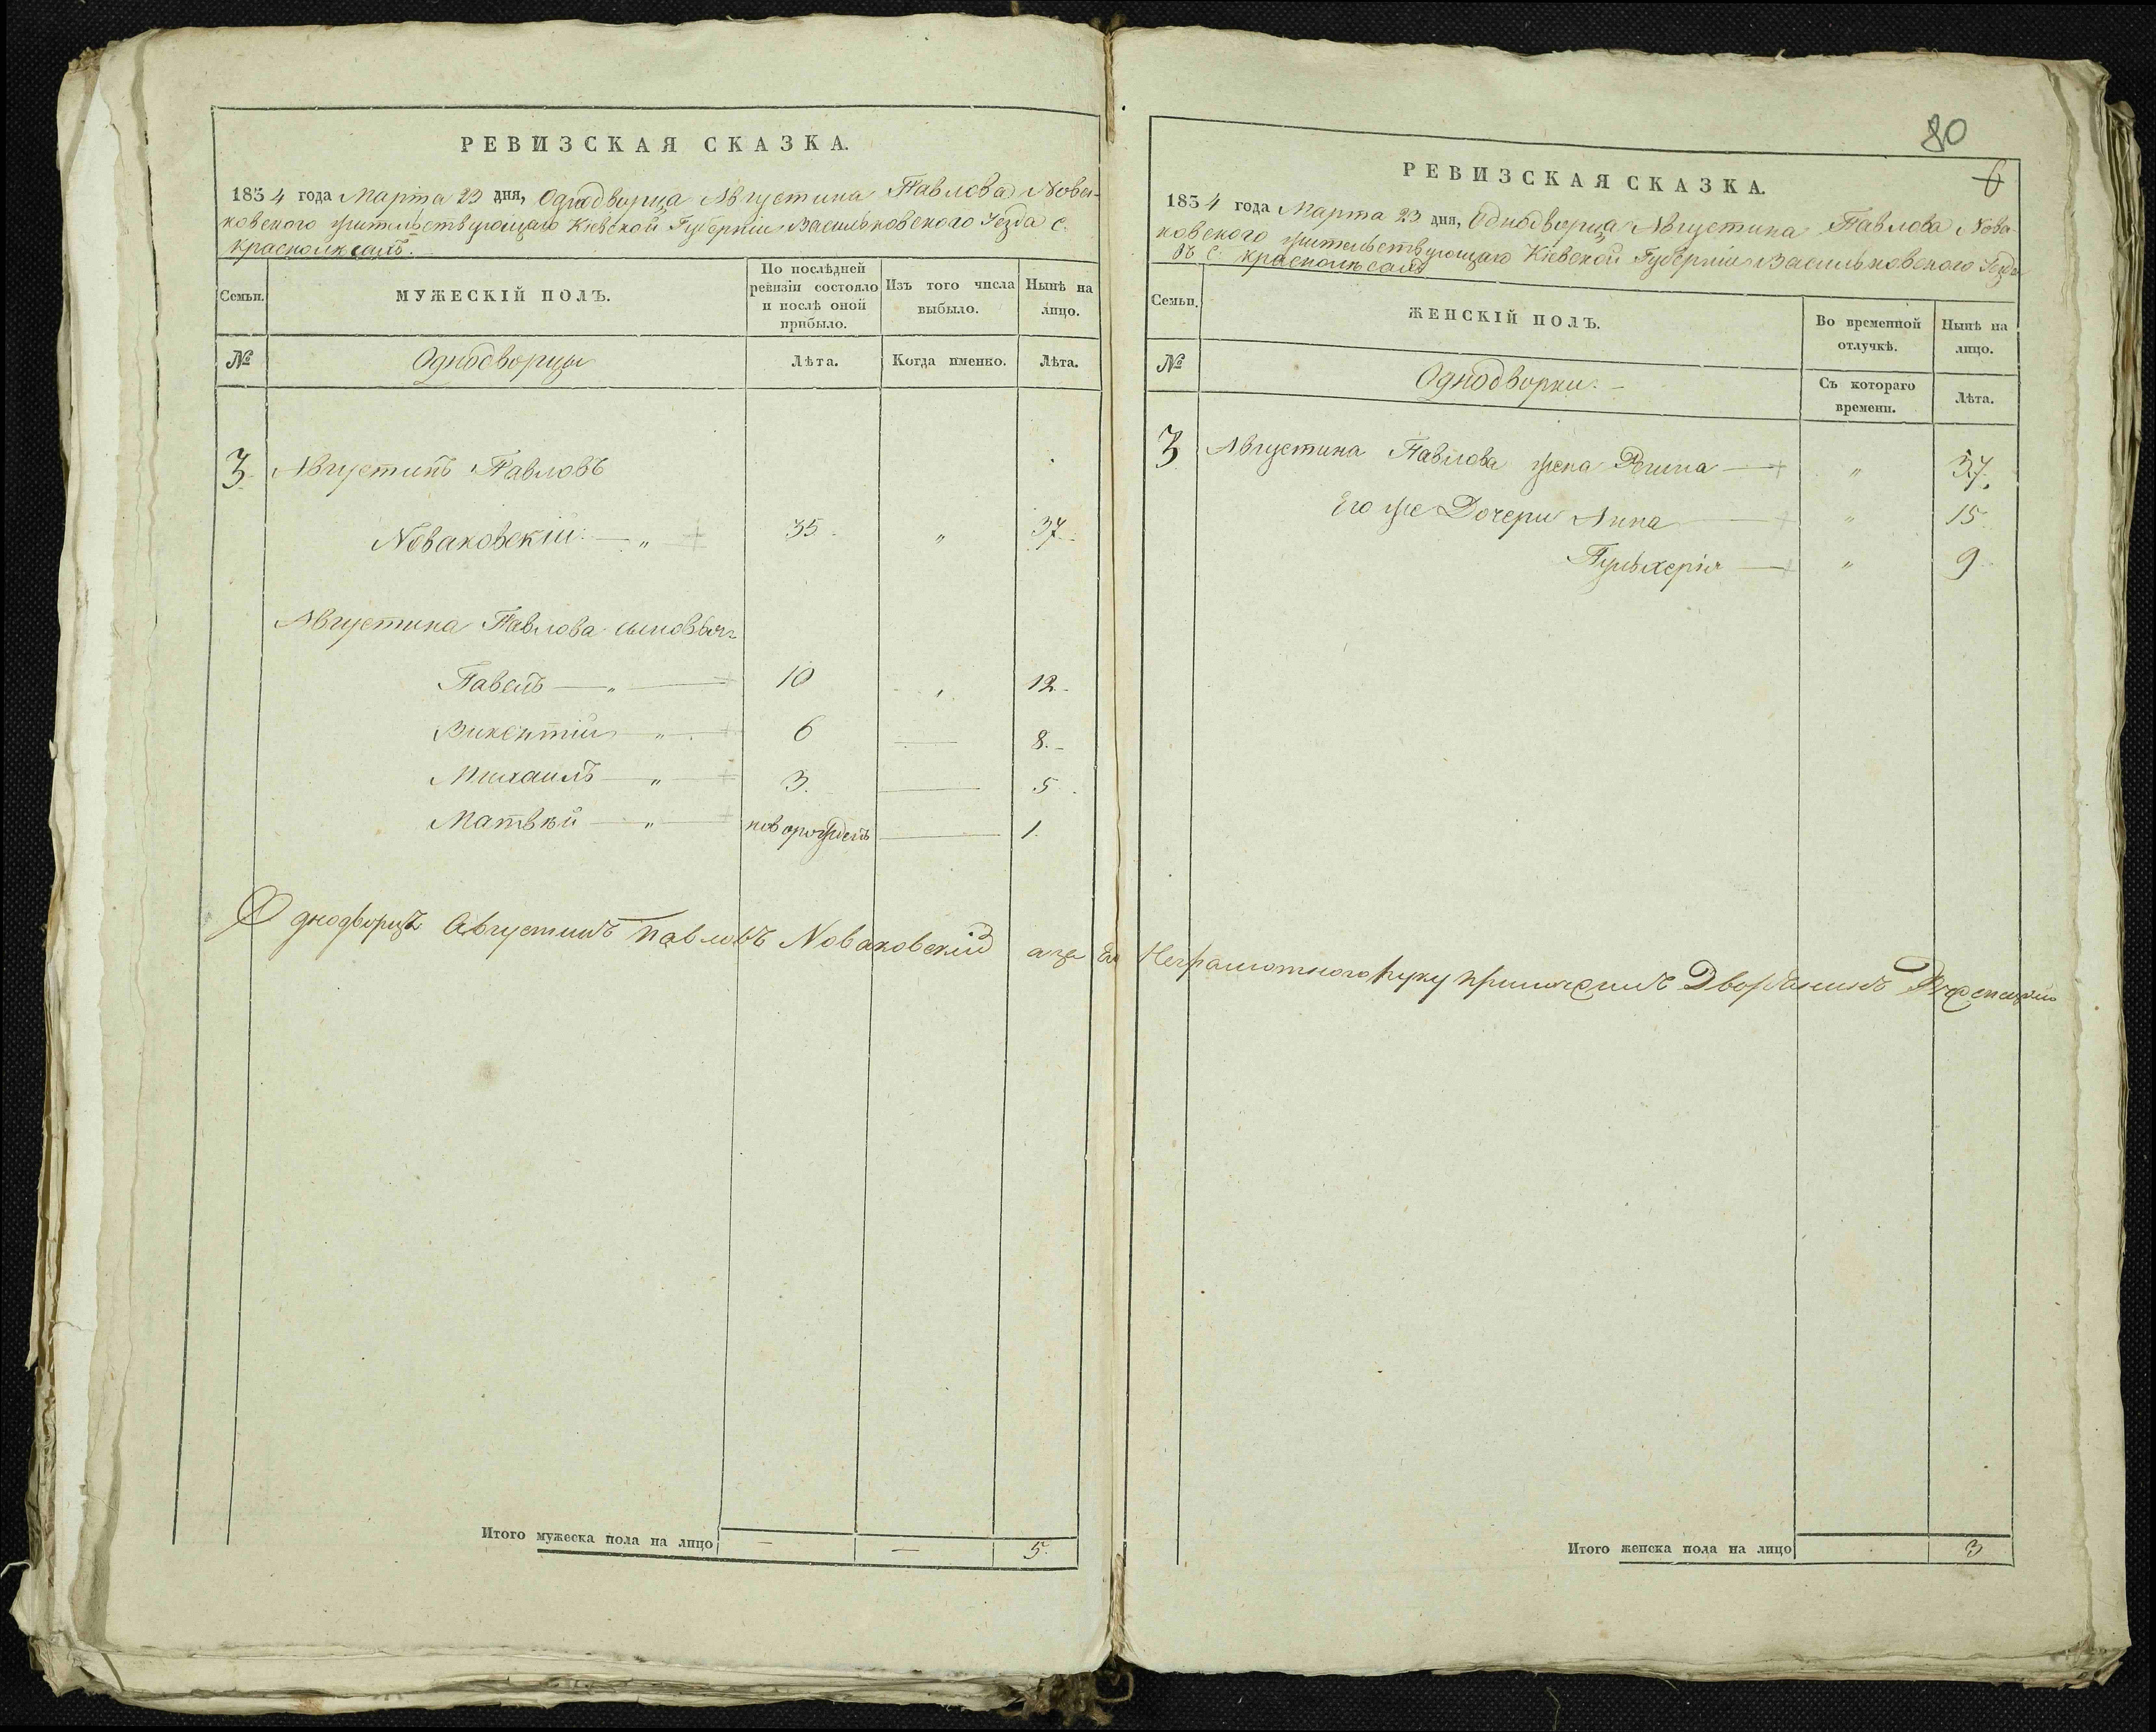 РЕВИЗСКАЯ СКАЗКА.
1834 года Марта 23 дня, Однодворца Августина Павлова Nова-
ковского жительствующаго Кіевской Губерніи Васильковского Уѣзда с.
Семьи.
МУЖЕСКІЙ ПОЛЪ.
По послѣдней ревизіи состояло и послѣ оной прибыло.
Изъ того числа выбыло.
Нынѣ на лицо.
№
Однодворцы
Лѣта.
Когда именно.
Лѣта.
3 Августинъ Павловъ
Nоваковскій — „ 35 „ 37
Августина Павлова сыновья
Павелъ — „ — 10 „ 12
Викентій „ 6 — 8
Михаилъ — „ — 3. — 5
Матвѣй — „ — новорожденъ — 1
Однодворецъ Августинъ Павловъ Nоваковскій а за Его Неграмотного руку приложилъ Дворянинъ
Итого мужеска пола на лицо — — 5
80
6
РЕВИЗСКАЯ СКАЗКА.
1834 года Марта 23 дня, Однодворца Августина Павлова Nова-
ковского жительствующаго Кіевской Губерніи Васильковского Уѣзда
въ с.
Семьи.
ЖЕНСКІЙ ПОЛЪ.
Во временной отлучкѣ.
Нынѣ на лицо.
№
Однодворки. –
Съ котораго времени.
Лѣта.
3 Августина Павлова жена — „ 37
Его же Дочери Анна — „ 15
Пульхерія — „ 9
Итого женска пола на лицо 3